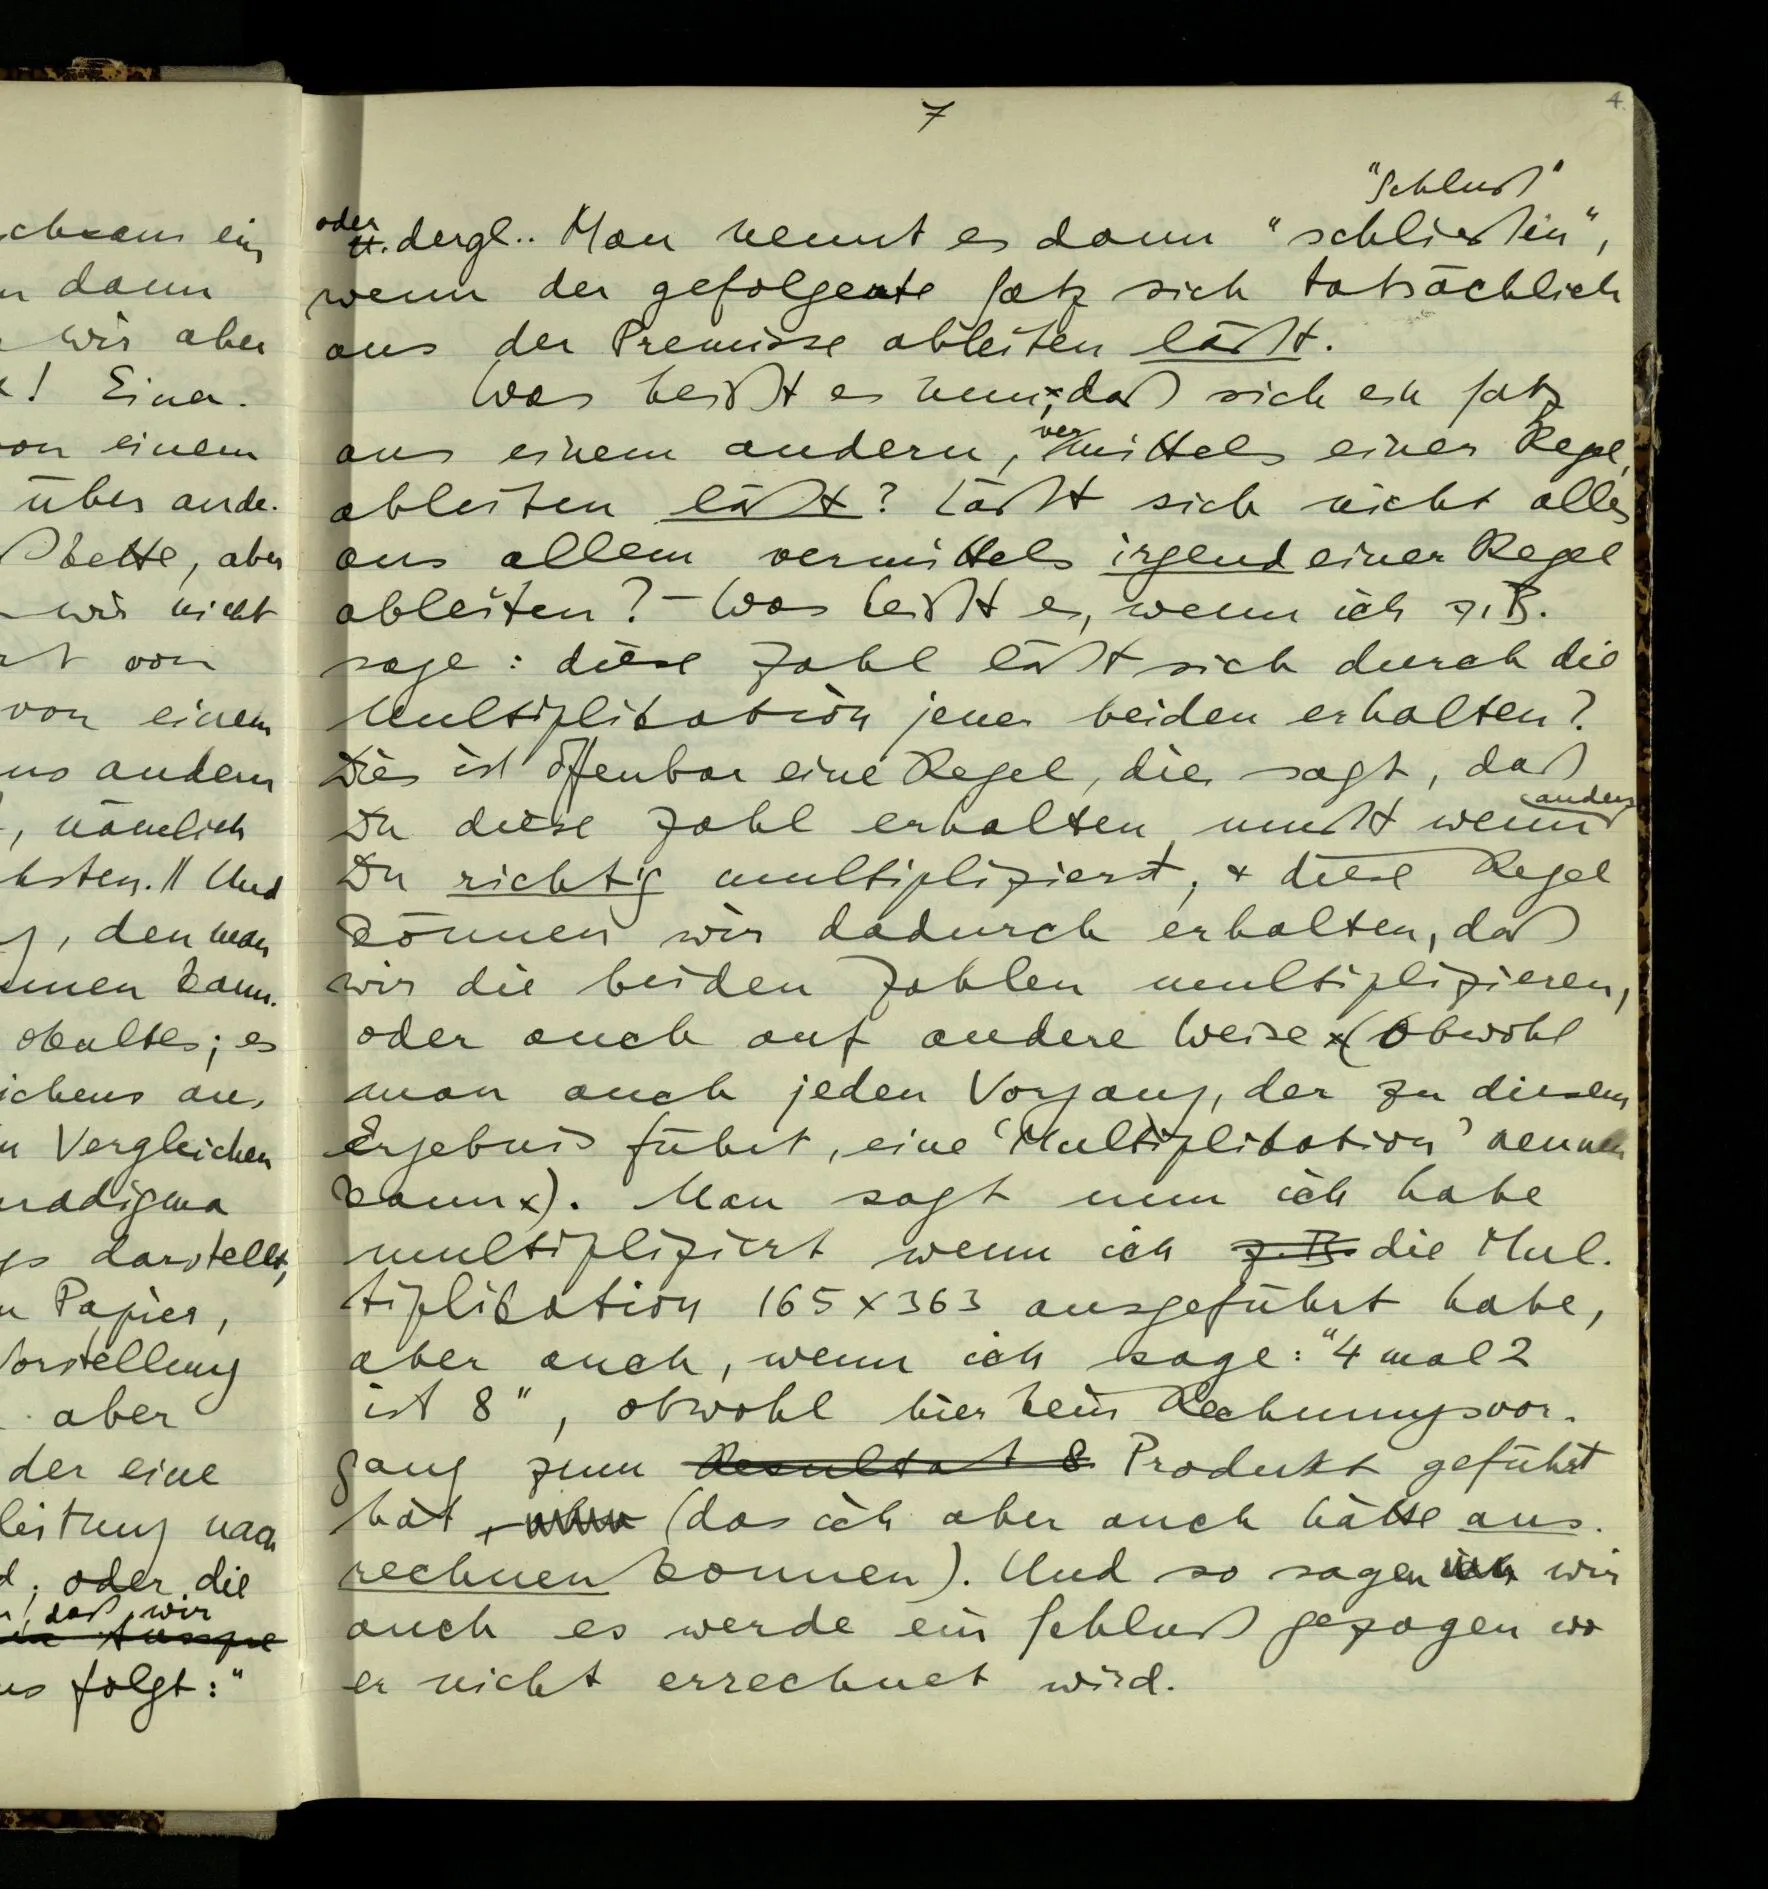 chsam ein
dann
wir aber
! Einer.
von einem
über ande.
hette, aber
wir nicht
von
von einem
andern
, nämlich
hsten. || Und
, den man
kann.
okultes; es
ichens an,
Vergleichen
radigma
darstellt,
Papier,
Vorstellung
aber
der eine
leitung nach
oder die
daß wir
folgt:"
7
4.
"Schluß"
oder
u. dergl.. Man nennt es dann "schließen",
wenn der gefolgerte Satz sich tatsächlich
aus der Premisse ableiten läßt.
Was heißt es nun, daß sich ein Satz
aus einem andern, vermittels einer Regel,
ableiten läßt? Läßt sich nicht alles
aus allem vermittels irgend einer Regel
ableiten? – Was heißt es, wenn ich z.B.
sage: diese Zahl läßt sich durch die
Multiplikation jener beiden erhalten?
Dies ist offenbar eine Regel, die sagt, daß
anders
Du diese Zahl erhalten mußt wenn
Du richtig multiplizierst, & diese Regel
können wir dadurch erhalten, daß
wir die beiden Zahlen multiplizieren,
oder auch auf andere Weise (obwohl
man auch jeden Vorgang, der zu diesem
Ergebnis führt, eine 'Multiplikation' nennen
kann). Man sagt nun ich habe
multipliziert wenn ich z.B. die Mul.
tiplikation 165 x 363 ausgeführt habe,
aber auch, wenn ich sage: "4 mal 2
ist 8", obwohl hier kein Rechnungsvor.
gang zum Resultat 8 Produkt geführt
hat, (das ich aber auch hätte aus.
rechnen können). Und so sagen ich wir
auch es werde ein Schluß gezogen wo
er nicht errechnet wird.